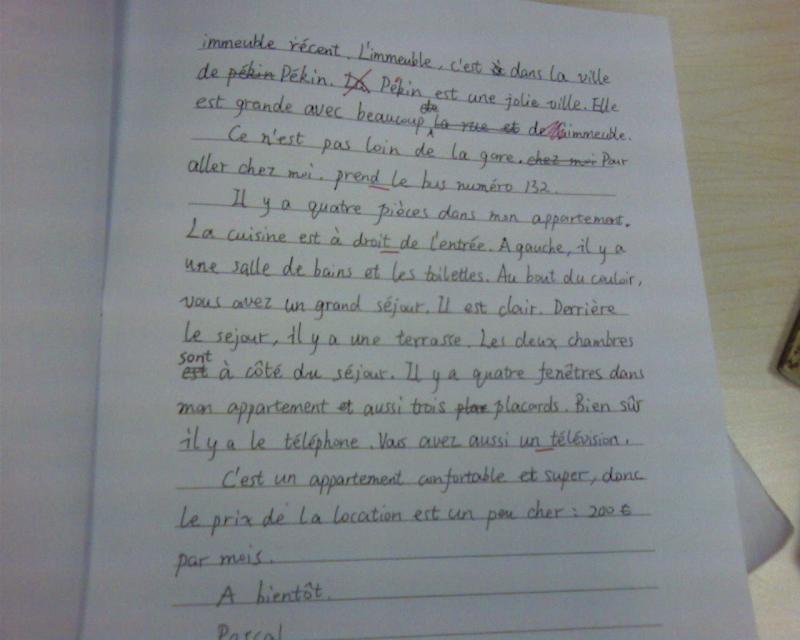 immeuble récent. L'immeuble, c'est dans la ville
de pékin Pékin. Pékin est une jolie ville. Elle
est grande avec beaucoup de la rue et de immeuble.
Ce n'est pas loin de la gare. chez moi Pour
aller chez moi. prend le bus numéro 132.
Il y a quatre pièces dans mon appartement.
La cuisine est à droit de l'entrée. A gauche, il y a
une salle de bains et les toilettes. Au bout du couloir,
vous avez un grand séjour. Il est clair. Derrière
le sejour, il y a une terrasse. Les deux chambres
sont
est à côté du séjour. Il y a quatre fenêtres dans
mon appartement et aussi trois placards. Bien sûr
il y a le téléphone. Vous avez aussi un télévision.
C'est un appartement confortable et super, donc
le prix de la location est un peu cher : 200 €
par mois.
A bientôt.
Pascal